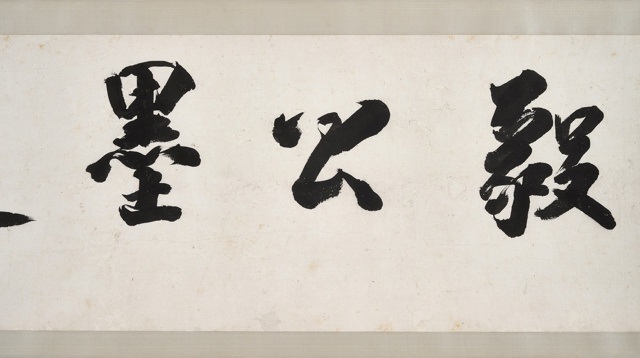 毅公墨